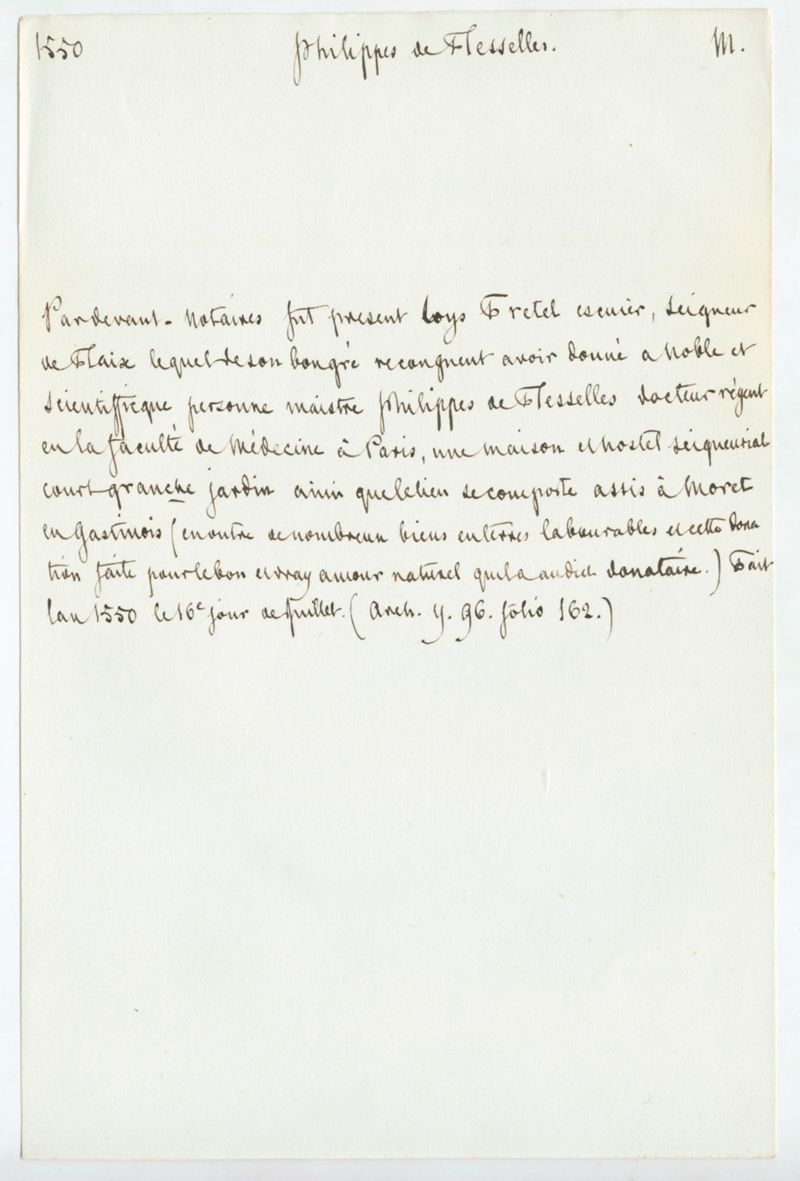 1550 Philippes de Flesselles. M.
Pardevant - Notaires fut present Loys Fretel escuier, Seigneur
de Flaix lequel de son bon gré recongneut avoir donné a Noble et
Scientiffieque personne maistre Philippes de Flesselles docteur régent
en la faculté de Médecine à Paris, une maison et hostel seigneurial
court granche jardin ainsi que le lieu se comporte assis à Moret
en Gastinois (en outre de nombreux biens en terres labourables et cette dona
tion faite pour le bon et vray amour naturel quil a audict donataire.) Fait
lan 1550 le 16e jour de Juillet. (Arch. Y. 96. folio 162.)